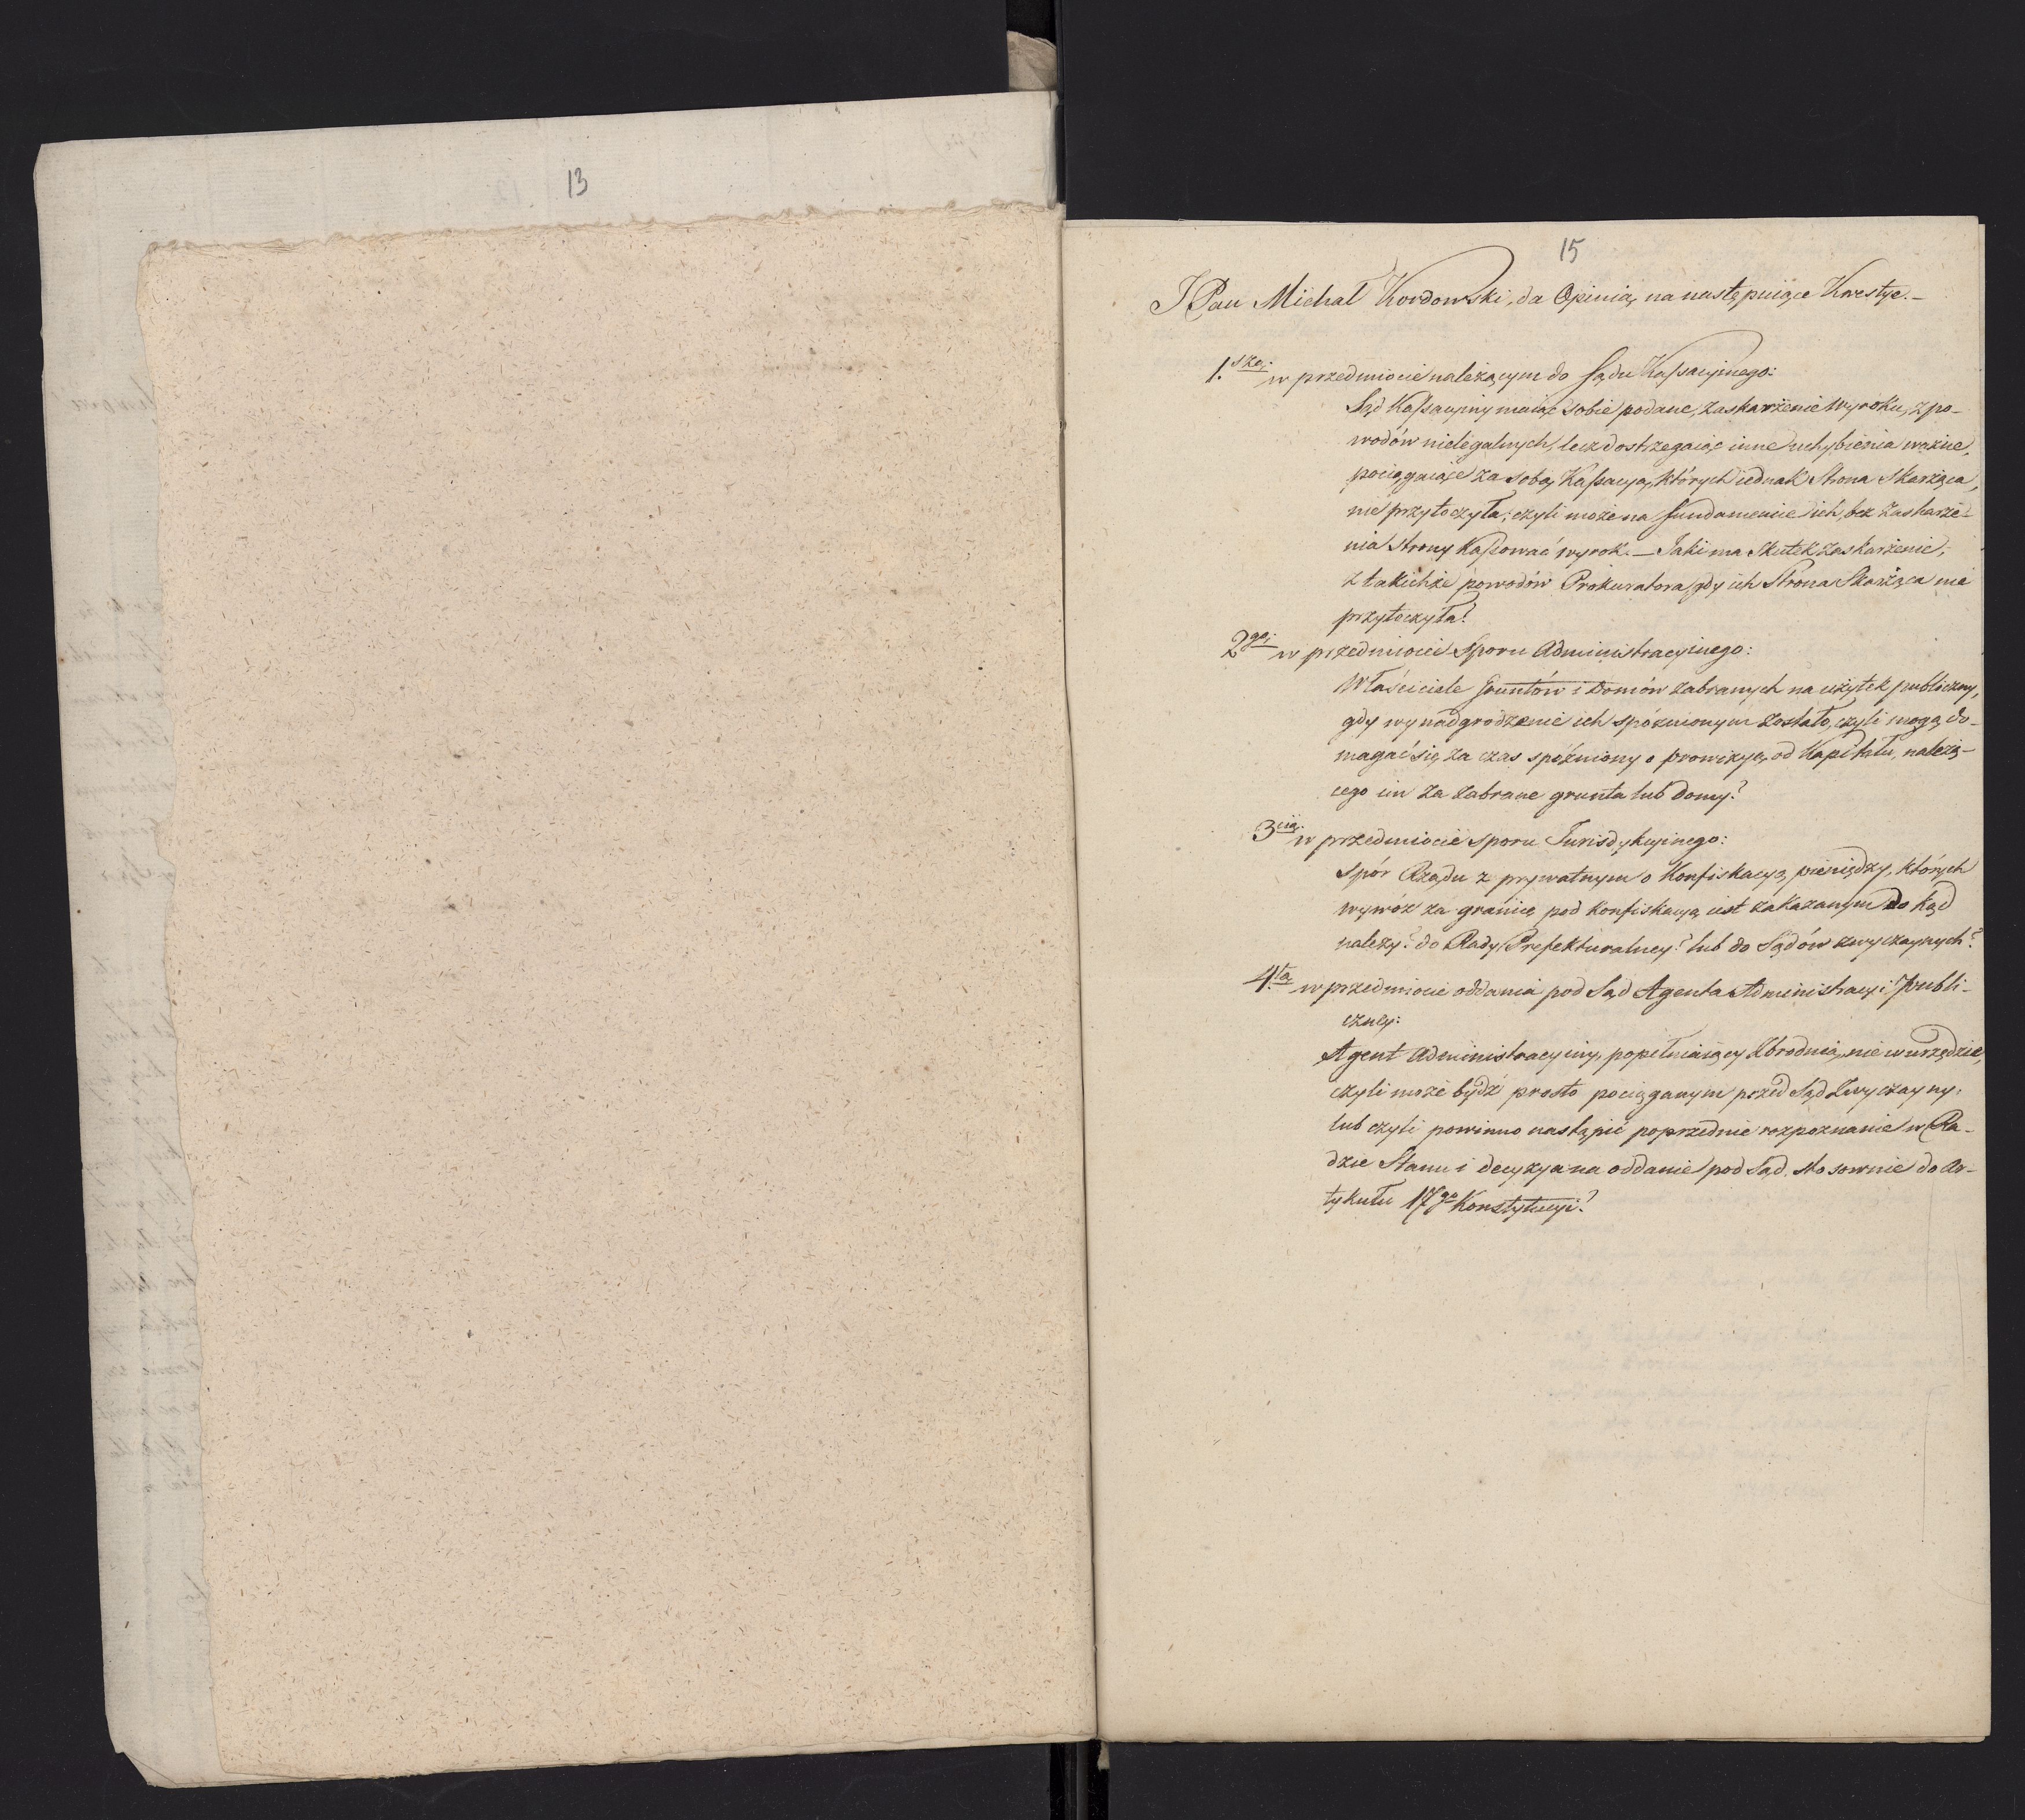 13
15
J Pan Michał Kordowski, da Opinią na następuiące Kwestye. –
1.szą: w przedmiocie należącym do Sądu Kassacyinego:
Sąd Kassacyiny maiąc sobie podane, zaskarżenie Wyroku, z po-
wodów nielegalnych, lecz dostrzegaiąc inne uchybienia ważne,
pociągaiące za sobą Kassacyą, których iednak Strona Skarżąca,
nie przytoczyła; czyli może na fundamencie ich, bez zaskarże-
nia Strony Kassować wyrok. – Jaki ma Skutek zaskarżenie,
z takichże powodów Prokuratora, gdy ich Strona Skarżąca nie
przytoczyła?
2gą: w przedmiocie Sporu Administracyinego:
Właściciele Gruntów i Domów zabranych na użytek publiczny,
gdy wynadgrodzenie ich spóznionym zostało, czyli mogą do-
magać się za czas spóźniony o prowizyą od Kapitału, należą-
cego im za zabrane grunta lub domy?
3cią: w przedmiocie sporu Jurisdykcyinego:
Spór Rządu z prywatnym o Konfiskacyą pieniędzy, których
wywóz za granicę pod konfiskacyą iest zakazanym do kąd
należy? do Rady Prefekturalney? lub do Sądów zwyczaynych?
4.tą w przedmiocie oddania pod Sąd Agenta Administracyi publi-
czney:
Agent Administracyiny, popełniaiący Zbrodnią, nie w urzędzie,
czyli może bydź prosto pociąganym przed Sąd Zwyczayny,
lub czyli powinno nastąpić poprzednie rozpoznanie w Ra-
dzie Stanu i decyzya na oddanie pod Sąd, stosownie do Ar-
tykułu 17go Konstytucyi?